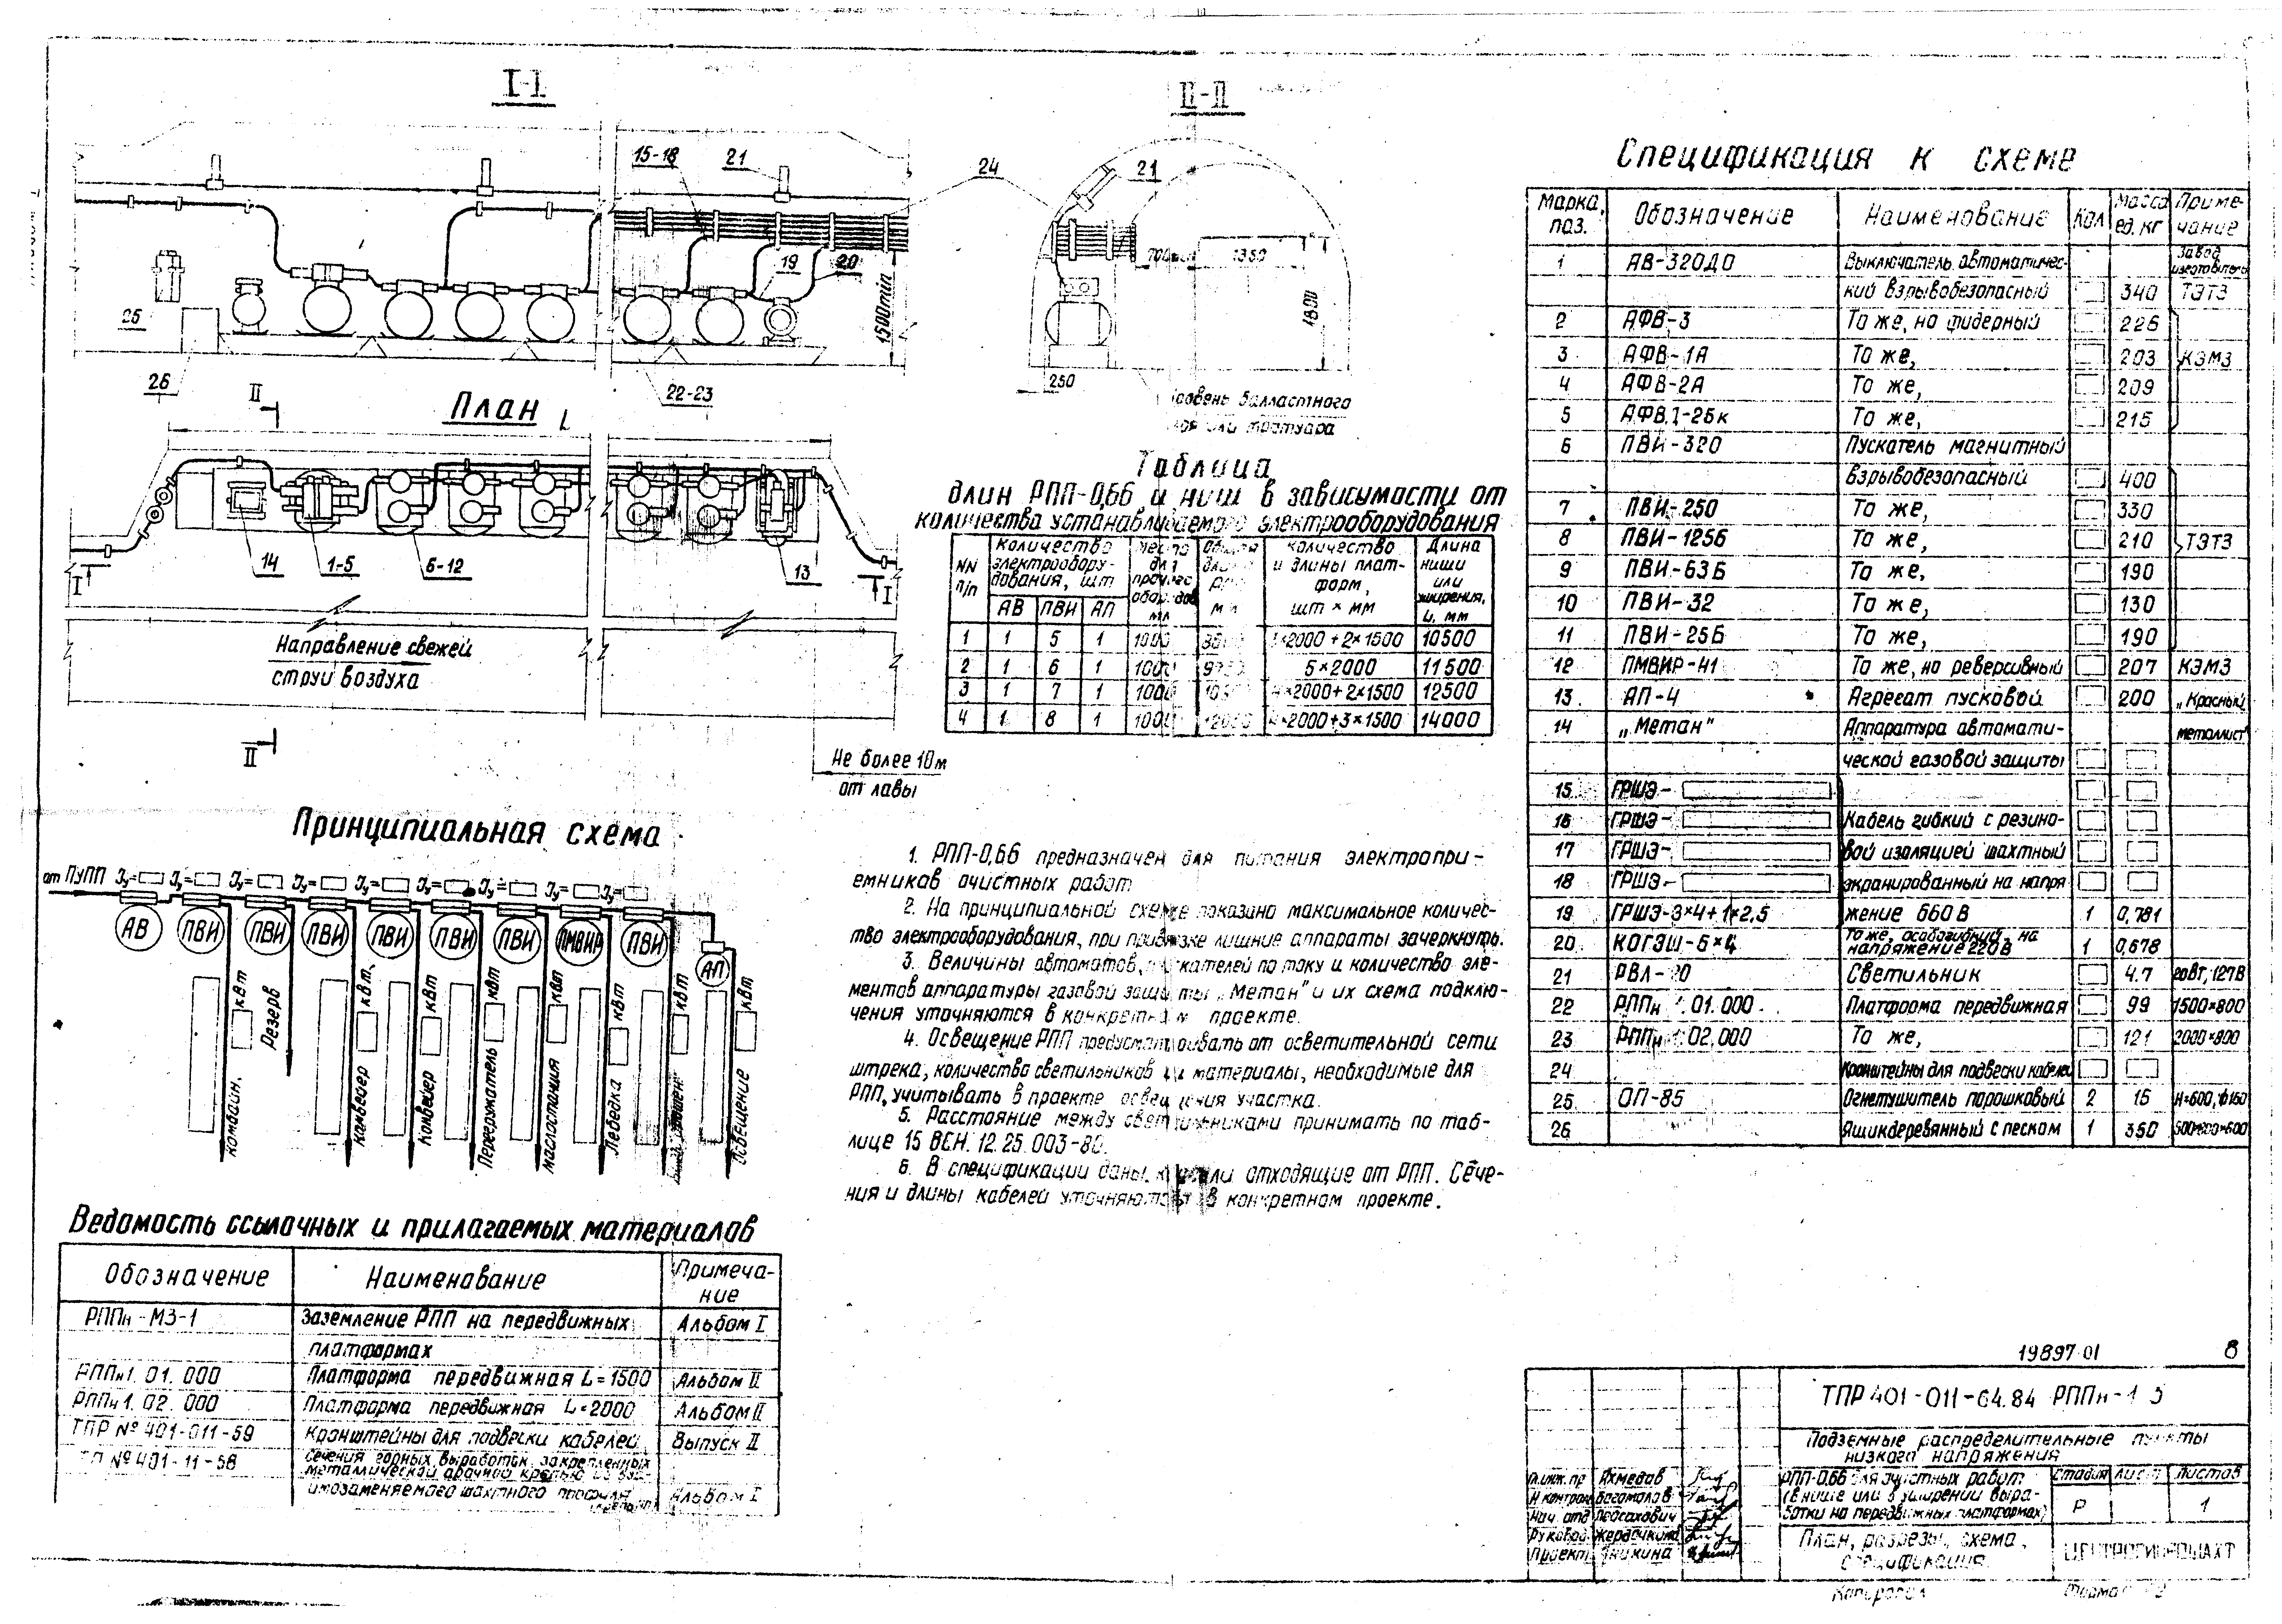 I-I
15-18
21
24
19
20
1500min
25
26
22-23
II-II
21
700
1350
1800
250
Уровень балластного
слоя или тротуара
План
II
L
14
1-5
6-12
13
I
I
Направление свежей
струи воздуха
II
Не более 10м
от лавы
Таблица
длин РПП-0,66 и ниш в зависимости от
количества устанавливаемого электрооборудования
NN п/п | Количество электрооборудования, шт | Место для прочего оборудов. мм | Общая длина РПП мм | Количество и длины платформ, шт × мм | Длина ниши или уширения, L, мм
АВ | ПВИ | АП
1 | 1 | 5 | 1 | 1000 | ×2000+2×1500 | 10500
2 | 1 | 6 | 1 | 1000 | 5×2000 | 11500
3 | 1 | 7 | 1 | 1000 | ×2000+2×1500 | 12500
4 | 1 | 8 | 1 | 1000 | ×2000+3×1500 | 14000
Принципиальная схема
от ПУПП Iу= Iу= Iу= Iу= Iу= Iу= Iу= Iу= Iу=
АВ ПВИ ПВИ ПВИ ПВИ ПВИ ПВИ ПМВИР ПВИ АП
Комбайн. квт
Резерв
Конвейер квт.
Конвейер квт
Перегружатель квт
Маслостанция квт
Лебедка квт
квт
Освещение квт
1. РПП-0,66 предназначен для питания электропри-
емников очистных работ
2. На принципиальной схеме показано максимальное количес-
тво электрооборудования, при привязке лишние аппараты зачеркнуть.
3. Величины автоматов, пускателей по току и количество эле-
ментов аппаратуры газовой защиты „Метан" и их схема подклю-
чения уточняются в конкретном проекте.
4. Освещение РПП предусматривать от осветительной сети
штрека, количество светильников и материалы, необходимые для
РПП, учитывать в проекте освещения участка.
5. Расстояние между светильниками принимать по таб-
лице 15 ВСН. 12.25.003-80.
6. В спецификации даны кабели отходящие от РПП. Сече-
ния и длины кабелей уточняются в конкретном проекте.
Ведомость ссылочных и прилагаемых материалов
Обозначение | Наименование | Примеча-ние
РППн-МЗ-1 | Заземление РПП на передвижных | Альбом I
платформах
РППн1.01.000 | Платформа передвижная L=1500 | Альбом II
РППн1.02.000 | Платформа передвижная L=2000 | Альбом II
ТПР № 401-011-59 | Кронштейны для подвески кабелей | Выпуск II
ТП № 401-11-58 | Сечения горных выработок, закрепленных
металлической арочной крепью из вза-
имозаменяемого шахтного профиля | Альбом I
Спецификация к схеме
Марка, поз. | Обозначение | Наименование | Кол | Масса ед. кг | Приме-чание
1 | АВ-320ДО | Выключатель автоматичес- | Завод изготовитель
кий взрывобезопасный | 340 | ТЭТЗ
2 | АФВ-3 | То же, но фидерный | 226
3 | АФВ-1А | То же, | 203 | КЭМЗ
4 | АФВ-2А | То же, | 209
5 | АФВ1-2бк | То же, | 215
6 | ПВИ-320 | Пускатель магнитный
взрывобезопасный | 400
7 | ПВИ-250 | То же, | 330
8 | ПВИ-125б | То же, | 210 | ТЭТЗ
9 | ПВИ-63Б | То же, | 190
10 | ПВИ-32 | То же, | 130
11 | ПВИ-25Б | То же, | 190
12 | ПМВИР-41 | То же, но реверсивный | 207 | КЭМЗ
13 | АП-4 | Агрегат пусковой | 200 | „Красный
14 | „Метан" | Аппаратура автомати- | металлист"
ческой газовой защиты
15 | ГРШЭ-
16 | ГРШЭ- | Кабель гибкий с резино-
17 | ГРШЭ- | вой изоляцией шахтный
18 | ГРШЭ- | экранированный на напря
19 | ГРШЭ-3×4+1×2,5 | жение 660 В | 1 | 0,781
20 | КОГЭШ-6×4 | То же, особогибкий, на напряжение 220 В | 1 | 0,678
21 | РВЛ-20 | Светильник | 4.7 | 20вт, 127В
22 | РППн 1.01.000 | Платформа передвижная | 99 | 1500×800
23 | РППн 1.02.000 | То же, | 121 | 2000×800
24 | Кронштейны для подвески кабелей
25 | ОП-85 | Огнетушитель порошковый | 2 | 15 | Н=600, ф160
26 | Ящик деревянный с песком | 1 | 350
19897-01 8
ТПР 401-011-64.84 РППн-1
Подземные распределительные пункты
низкого напряжения
РПП-0,66 для очистных работ
(в нише или в уширении выра-
ботки на передвижных платформах)
Стадия | Лист | Листов
Р | 1
План, разрезы, схема,
спецификация.
ЦЕНТРОГИПРОШАХТ
Гл.инж.пр Ахмедов
Н контроль Богомолов
Нач. отд Песахович
Руковод Жердочкина
Проект Аникина
Копировал
Формат